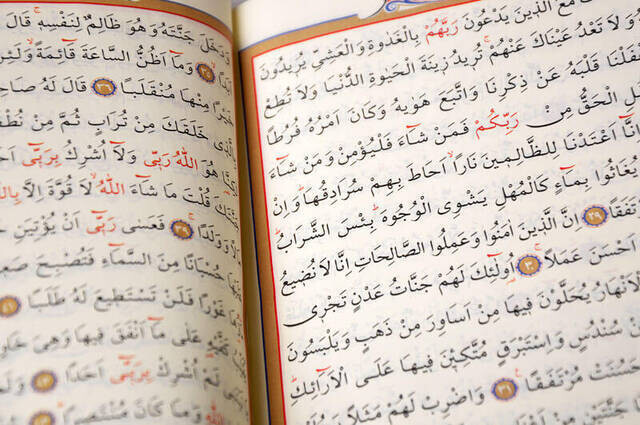 مَعَ الَّذِينَ يَدْعُونَ رَبَّهُمْ بِالْغَدٰوةِ وَالْعَشِيِّ يُرِيدُونَ
وَلَا تَعْدُ عَيْنَاكَ عَنْهُمْ تُرِيدُ زِينَةَ الْحَيٰوةِ الدُّنْيَا وَلَا تُطِعْ
قَلْبَهُ عَنْ ذِكْرِنَا وَاتَّبَعَ هَوٰيهُ وَكَانَ اَمْرُهُ فُرُطًا
الْحَقُّ مِنْ رَبِّكُمْ فَمَنْ شَٓاءَ فَلْيُؤْمِنْ وَمَنْ شَٓاءَ
اِنَّٓا اَعْتَدْنَا لِلظَّالِمِينَ نَارًا اَحَاطَ بِهِمْ سُرَادِقُهَا وَاِنْ
يُغَاثُوا بِمَٓاءٍ كَالْمُهْلِ يَشْوِي الْوُجُوهَ بِئْسَ الشَّرَابُ
٢٩ اِنَّ الَّذِينَ اٰمَنُوا وَعَمِلُوا الصَّالِحَاتِ اِنَّا لَا نُضِيعُ
اَحْسَنَ عَمَلًا ٣٠ اُولٰٓئِكَ لَهُمْ جَنَّاتُ عَدْنٍ تَجْرِي
الْاَنْهَارُ يُحَلَّوْنَ فِيهَا مِنْ اَسَاوِرَ مِنْ ذَهَبٍ وَيَلْبَسُونَ
سُنْدُسٍ وَاِسْتَبْرَقٍ مُتَّكِئِينَ فِيهَا عَلَى الْاَرَٓائِكِ
حَسُنَتْ مُرْتَفَقًا ٣١ وَاضْرِبْ لَهُمْ مَثَلًا
وَدَخَلَ جَنَّتَهُ وَهُوَ ظَالِمٌ لِنَفْسِهِ قَالَ
اَبَدًا ٣٥ وَمَٓا اَظُنُّ السَّاعَةَ قَٓائِمَةً وَلَئِنْ
خَيْرًا مِنْهَا مُنْقَلَبًا ٣٦ قَالَ لَهُ
خَلَقَكَ مِنْ تُرَابٍ ثُمَّ مِنْ
هُوَ اللّٰهُ رَبِّي وَلَٓا اُشْرِكُ بِرَبِّٓي
قُلْتَ مَا شَٓاءَ اللّٰهُ لَا قُوَّةَ اِلَّا
وَوَلَدًا ٣٩ فَعَسٰى رَبِّٓي اَنْ يُؤْتِيَنِ
حُسْبَانًا مِنَ السَّمَٓاءِ فَتُصْبِحَ
غَوْرًا فَلَنْ تَسْتَطِيعَ لَهُ طَلَبًا ٤١
عَلٰى مَٓا اَنْفَقَ فِيهَا وَهِيَ
لَمْ اُشْرِكْ بِرَبِّٓي اَحَدًا ٤٢
اللّٰهِ وَمَا كَانَ مُنْتَصِرًا ٤٣